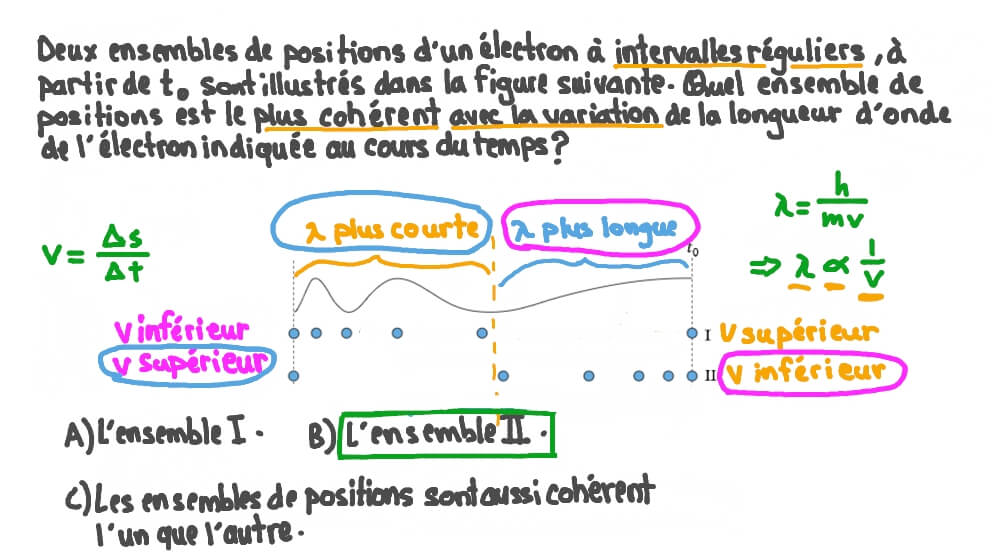 Deux ensembles de positions d'un électron à intervalles réguliers, à
partir de t₀ sont illustrés dans la figure suivante. Quel ensemble de
positions est le plus cohérent avec la variation de la longueur d'onde
de l'électron indiquée au cours du temps?
λ = h/mv
λ plus courte λ plus longue
v = Δs/Δt
t₀
⇒ λ ∝ 1/v
v inférieur I v supérieur
v supérieur II v inférieur
A) L'ensemble I. B) L'ensemble II.
C) Les ensembles de positions sont aussi cohérent
l'un que l'autre.